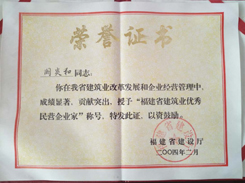 荣誉证书
同志:
你在我省建筑业改革发展和企业经营管理中,
成绩显著、贡献突出,授予“福建省建筑业优秀
民营企业家”称号,特发此证,以资鼓励。
福建省建设厅
二〇〇四年二月